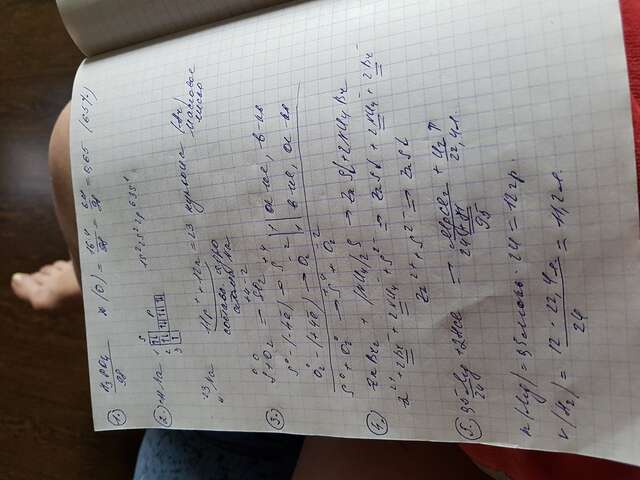 1. H₃PO₄ / 98 (O) = 16·4/98 = 64/98 = 0,65 (65%)
2. 11 Na 1s²2s²2p⁶3s¹
S P
1 ↑↓
2 ↑↓ ↑↓ ↑↓ ↑↓
3 ↑
²³₁₁Na 11p⁺ + 12n = 23 (Ar)
массовое
число
состав ядра
атома Na
3. S⁰ + O₂⁰ → S⁺⁴O₂⁻²
S⁰ - (-4ē) → S⁺⁴
O₂⁰ - (+4ē) → O₂⁻²
S⁰ + O₂⁰ → S⁺⁴ + O₂⁻²
4. ZnBr₂ + (NH₄)₂S → ZnS↓ + 2NH₄Br
Zn²⁺ + 2Br⁻ + 2NH₄⁻ + S²⁻ = ZnS↓ + 2NH₄⁻ + 2Br⁻
Zn²⁺ + S²⁻ = ZnS↓
5. 0,5 Mg + 2HCl = MgCl₂ + H₂↑
24 24+71 22,4л.
95
(Mg) = 0,5моль · 24 = 12гр
V(H₂) = 12 · 22,4л / 24 = 11,2л.